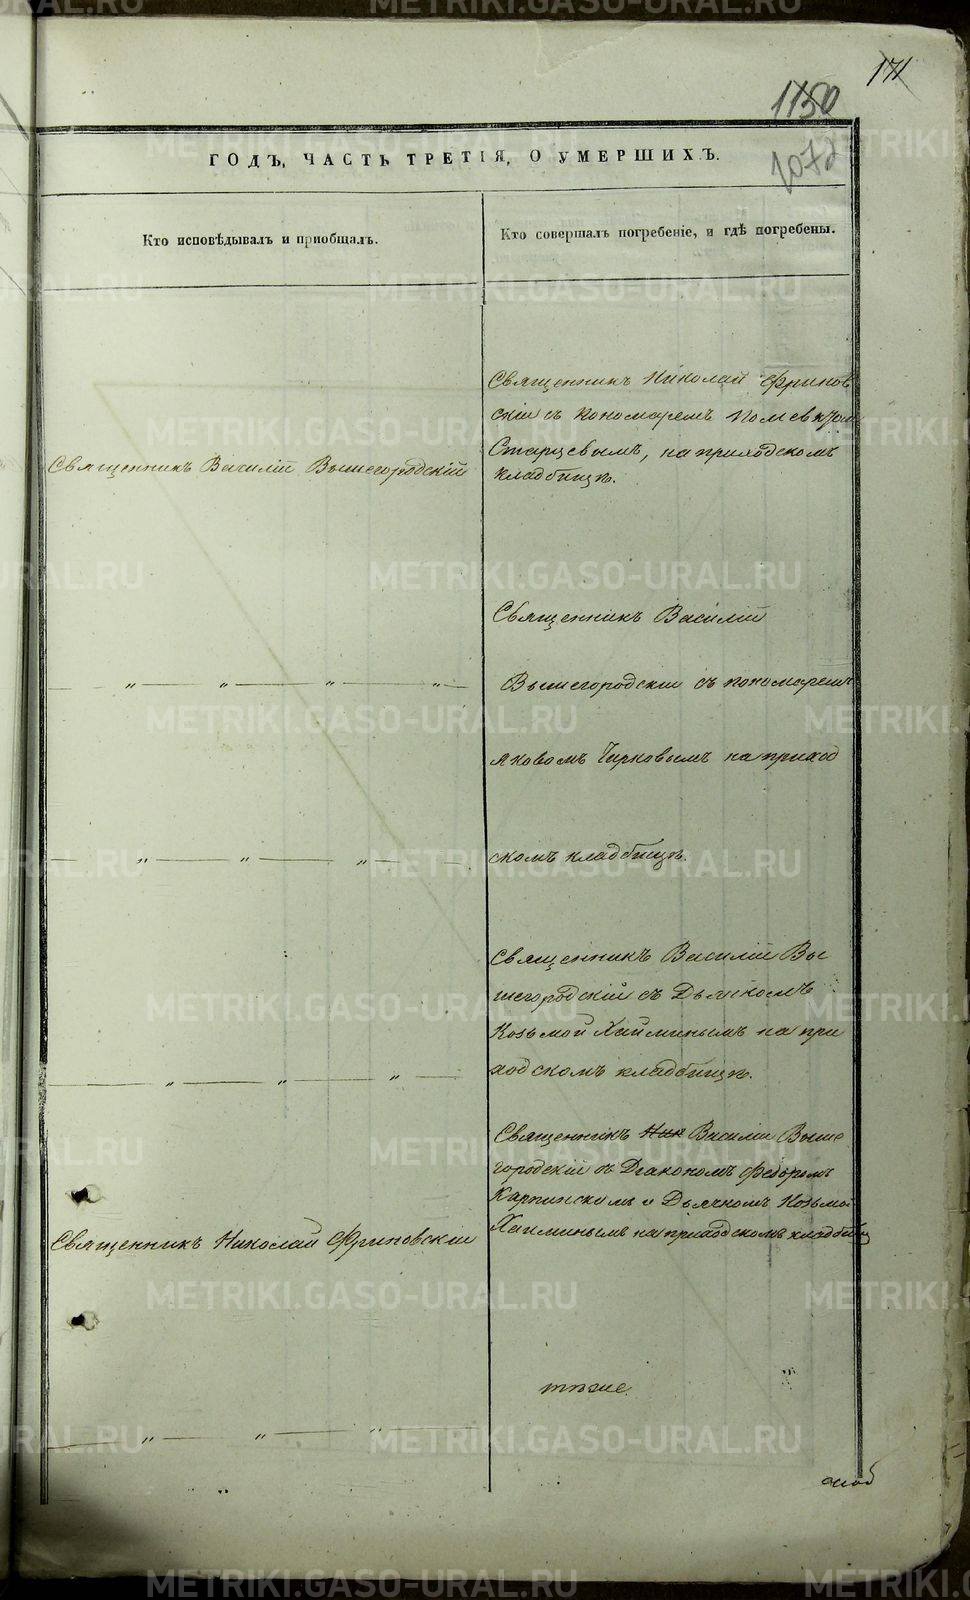 171
1150
1072
ГОДЪ, ЧАСТЬ ТРЕТІЯ, О УМЕРШИХЪ.
Кто исповѣдывалъ и пріобщалъ.
Кто совершалъ погребеніе, и гдѣ погребены.
Священникъ Николай Фринов
скій съ пономаремъ
Старцевымъ, на приходскомъ
кладбищѣ.
Священникъ Василій Вышегородскій
Священникъ Василій
Вышегородскій съ пономаремъ
Яковомъ Чирковымъ на приход
скомъ кладбищѣ.
Священникъ Василій Вы
шегородскій съ Дьячкомъ
Козьмой Хайминымъ на при
ходскомъ кладбищѣ.
Священникъ Ник Василій Выше
городскій съ Діакономъ Федоромъ
Карпинскимъ и Дьячкомъ Козьмой
Хайминымъ на приходскомъ кладбищ
Священникъ Николай Фриновскій
тѣже.
METRIKI.GASO-URAL.RU